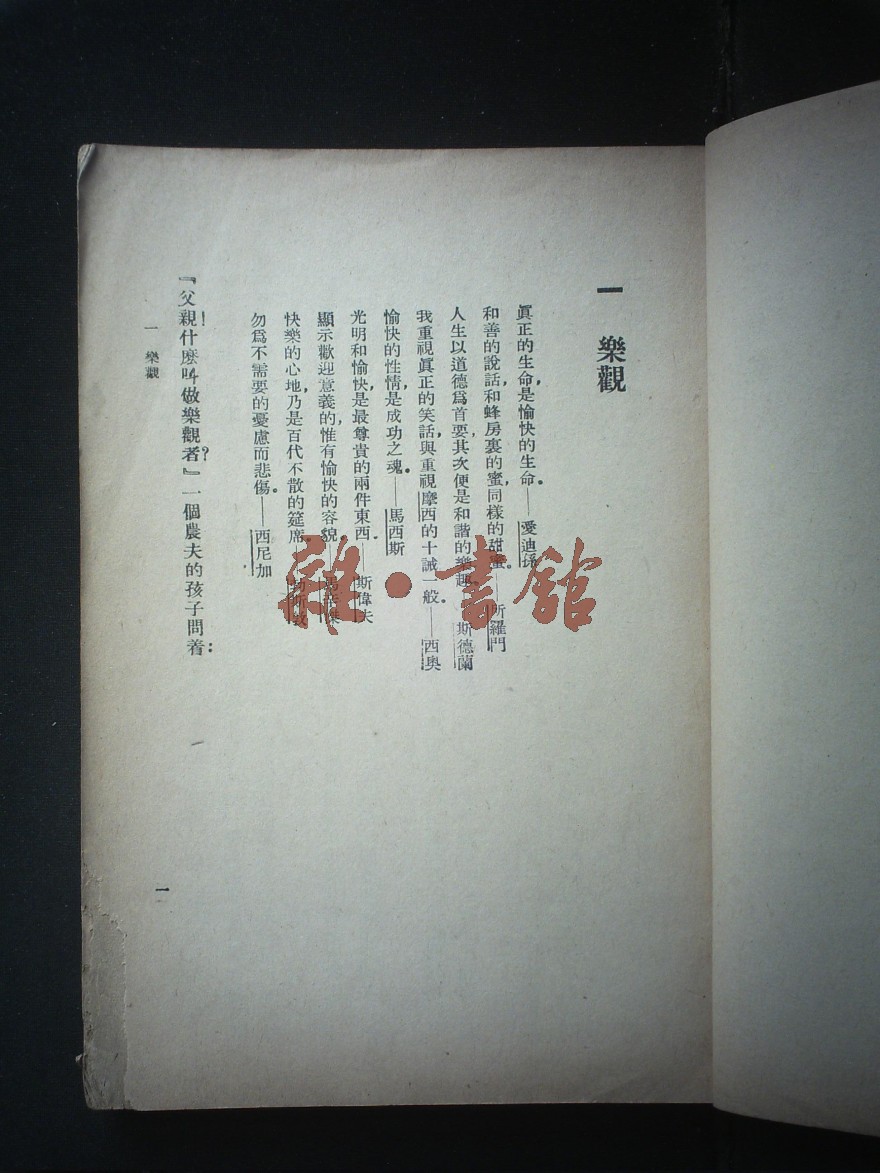 一 樂觀
眞正的生命,是愉快的生命。——愛迪係
和善的說話,和蜂房裏的蜜,同樣的甜蜜。——所羅門
人生以道德爲首要,其次便是和諧的樂趣。——斯德蘭
我重視眞正的笑話,與重視摩西的十誡一般。——西奧
愉快的性情,是成功之魂。——馬西斯
光明和愉快,是最尊貴的兩件東西。——斯偉夫
顯示歡迎意義的,惟有愉快的容貌。
快樂的心地,乃是百代不散的筵席。
勿爲不需要的憂慮而悲傷。——西尼加
『父親!什麽叫做樂觀者?』一個農夫的孩子問着:
一 樂觀
一
雜·書館